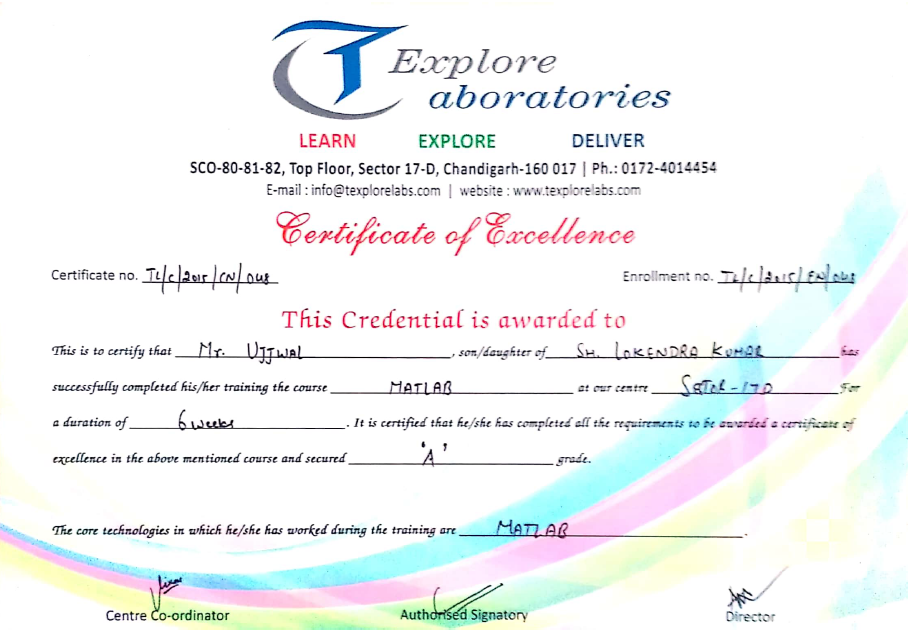 T Explore
Laboratories
LEARN EXPLORE DELIVER
SCO-80-81-82, Top Floor, Sector 17-D, Chandigarh-160 017 | Ph.: 0172-4014454
E-mail : info@texplorelabs.com | website : www.texplorelabs.com
Certificate of Excellence
Certificate no. TL/C/2015/CN/048 Enrollment no. TL/C/2015/EN/048
This Credential is awarded to
This is to certify that Mr. UJJWAL, son/daughter of SH. LOKENDRA KUMAR has
successfully completed his/her training the course MATLAB at our centre -17D For
a duration of 6 weeks. It is certified that he/she has completed all the requirements to be awarded a certificate of
excellence in the above mentioned course and secured 'A' grade.
The core technologies in which he/she has worked during the training are MATLAB.
Centre Co-ordinator Authorised Signatory Director